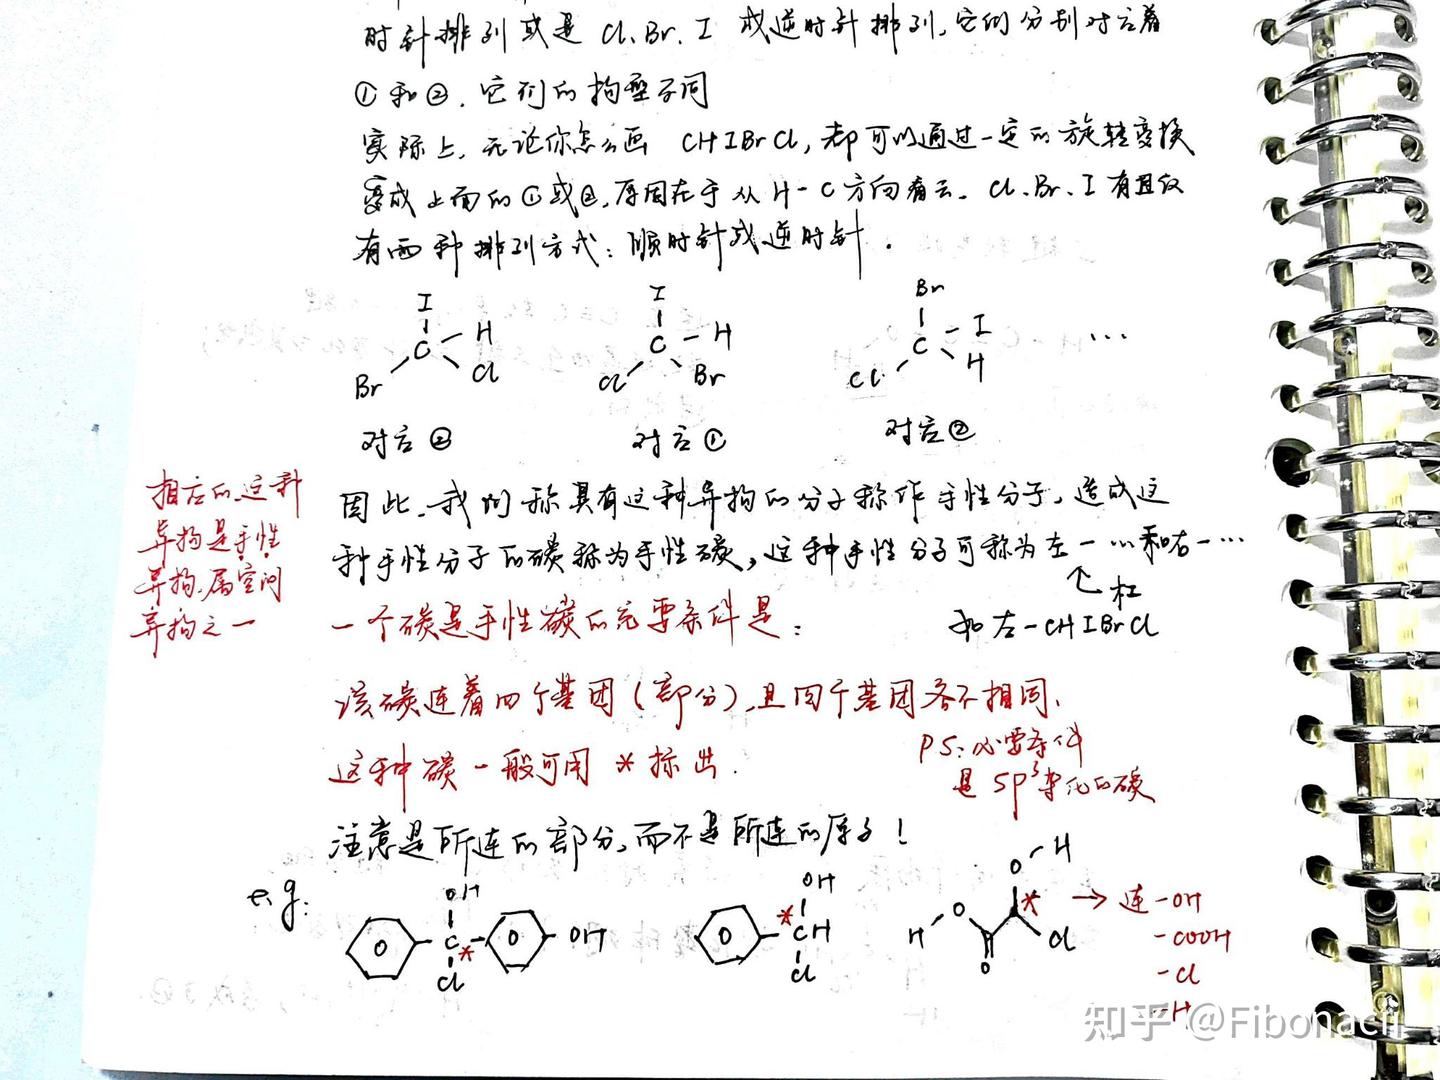 时针排列或是 Cl、Br、I 成逆时针排列，它们分别对应着
①和②，它们的构型不同
实际上，无论你怎么画 CHIBrCl，都可以通过一定的旋转变换
变成上面的①或②，原因在于从 H-C 方向看去，Cl、Br、I 有且仅
有两种排列方式：顺时针或逆时针．
I
C
H
Br
Cl
对应②
I
C
H
Cl
Br
对应①
Br
C
I
H
Cl
对应②
...
相应的这种
异构是手性
异构，属空间
异构之一
因此，我们称具有这种异构的分子称作手性分子，造成这
种手性分子的碳称为手性碳，这种手性分子可称为左一…和右一…
杠
如左一CHIBrCl
一个碳是手性碳的充要条件是：
该碳连着四个基团（部分），且四个基团各不相同．
这种碳一般可用 * 标出．
PS：必要条件
是 sp³杂化的碳
注意是所连的部分，而不是所连的原子！
e.g:
OH
C
*
Cl
OH
OH
*
CH
Cl
H
O
O
O
H
*
Cl
→ 连 -OH
-COOH
-Cl
-H
知乎 @Fibonacii